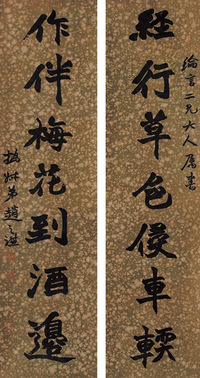 綸言二兄大人屬書
經行草色侯車輭
作伴梅花到酒邊
撝叔弟趙之謙